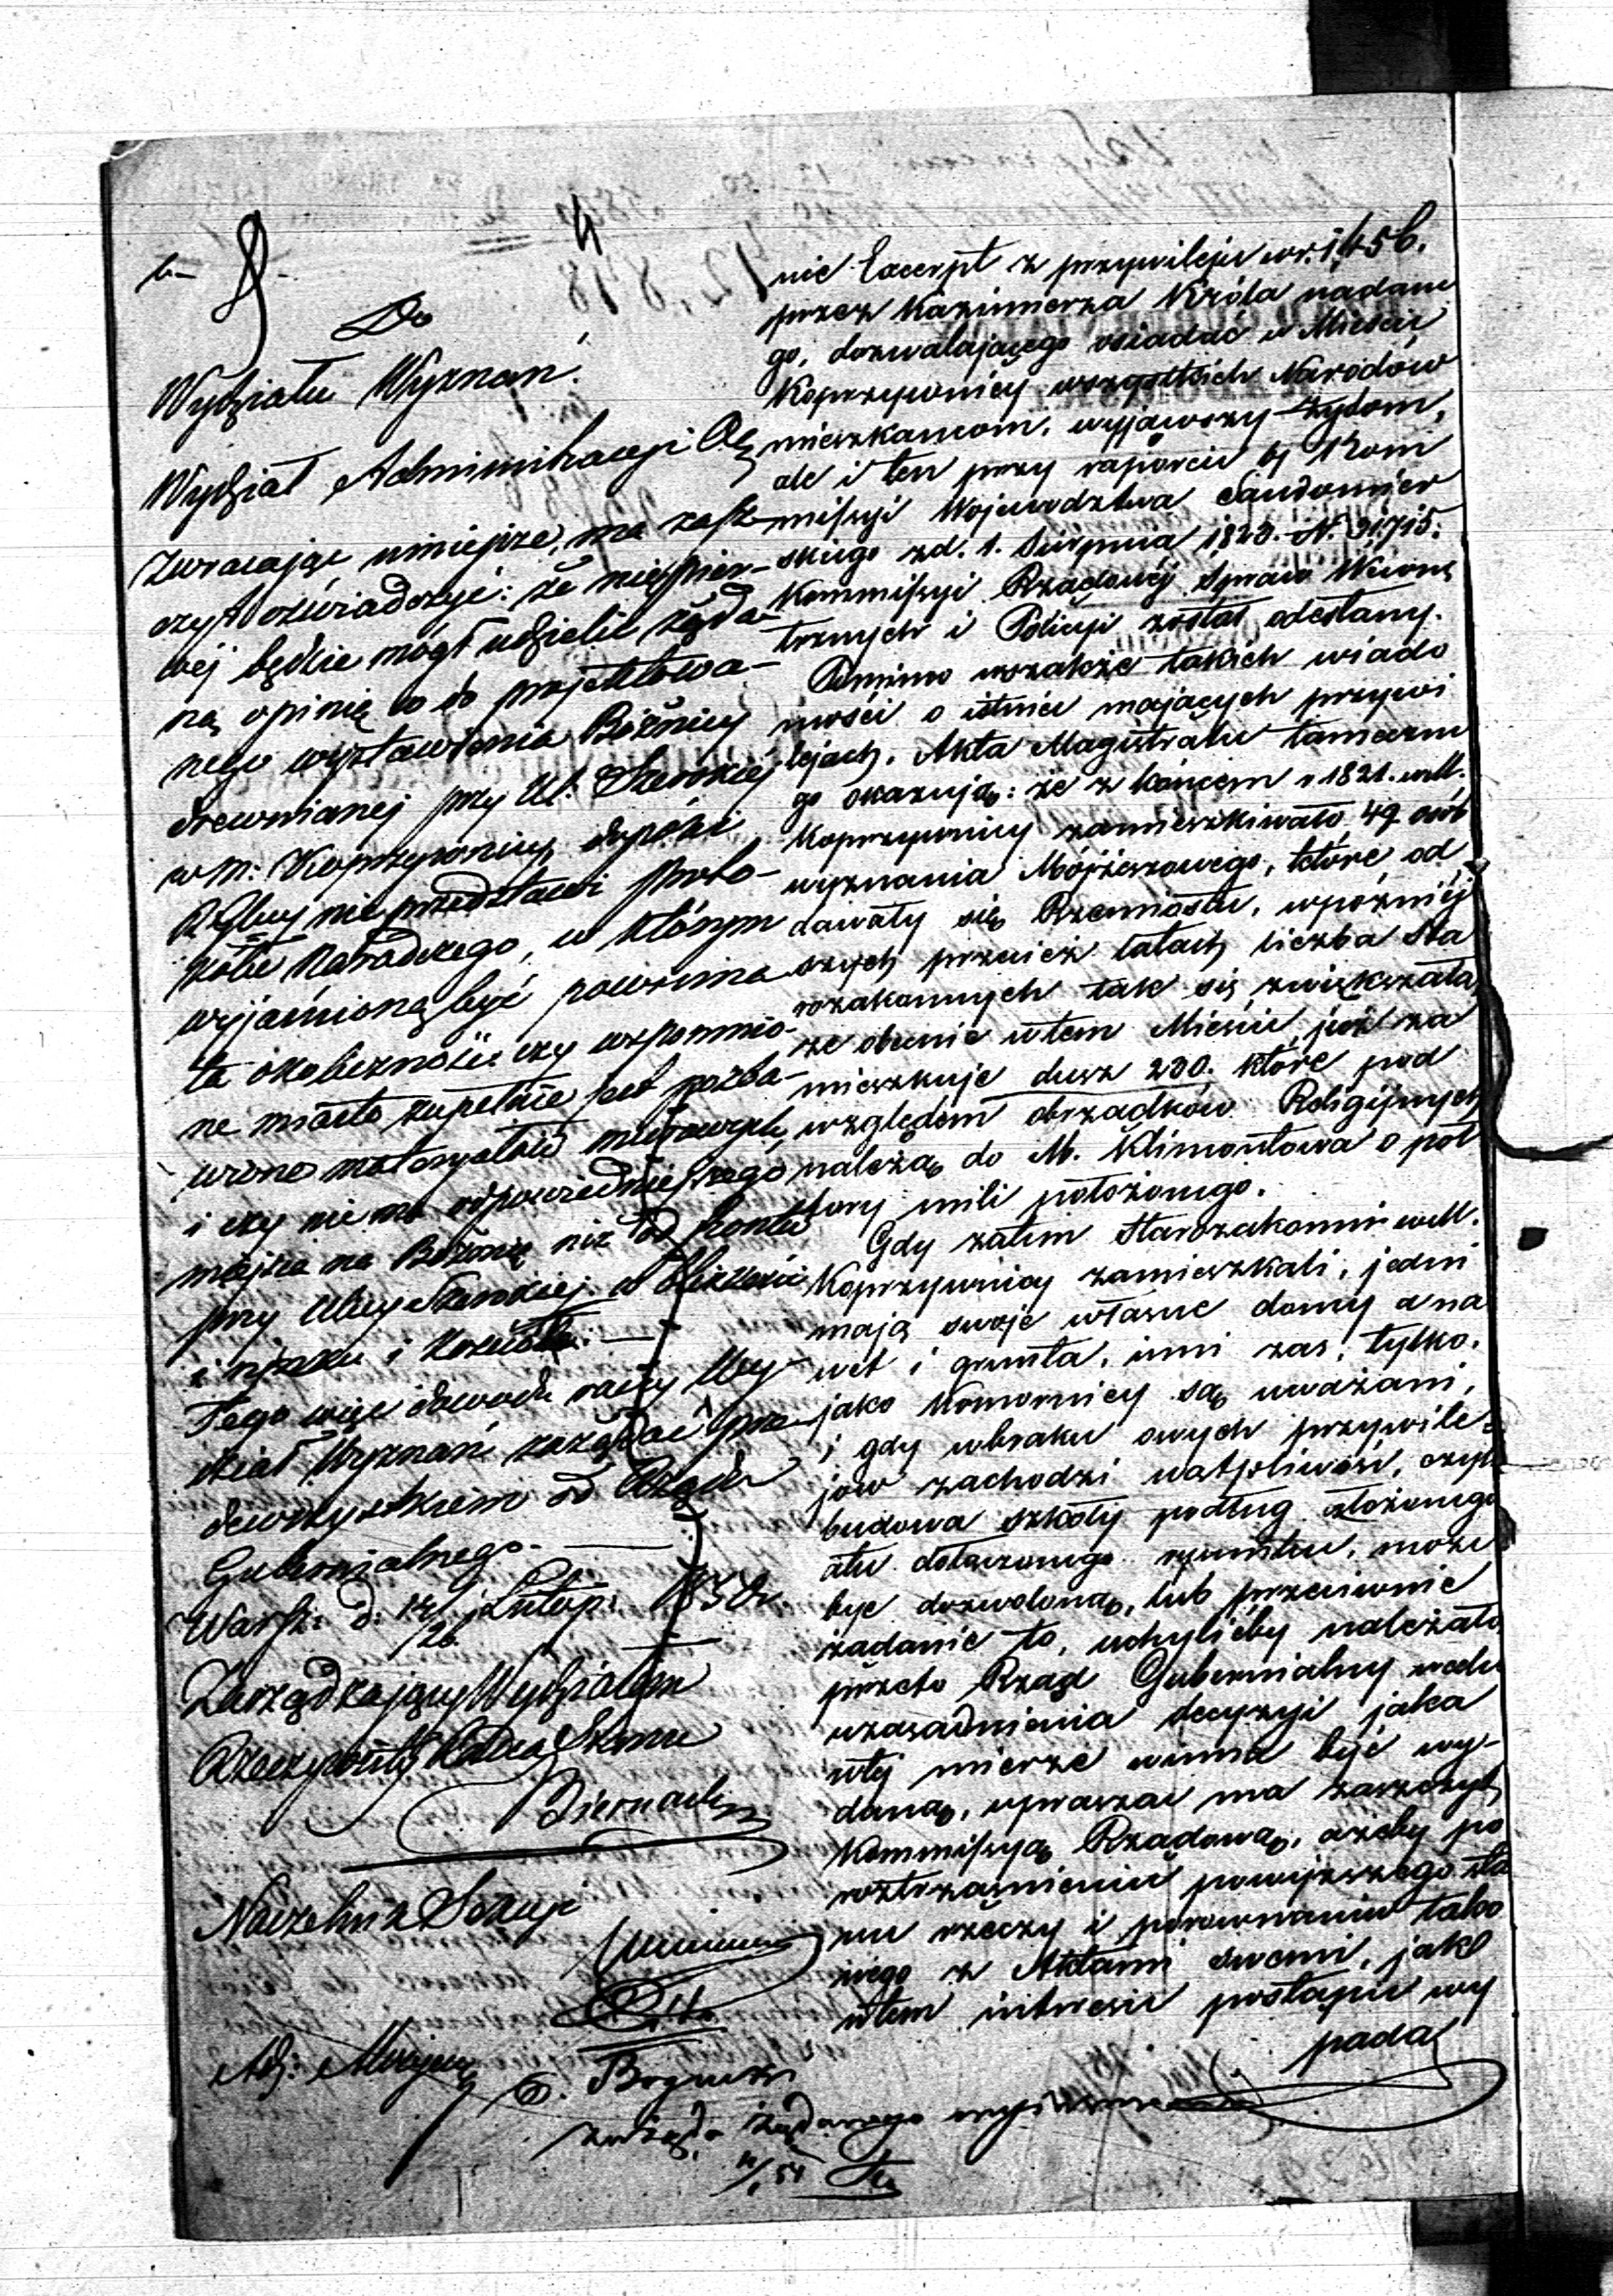 Do
Wydziału Wyznań.
Wydział Administracyi Og.
zwracając niniejsze, ma zasz-
czyt oświadczyć: że niepier-
wéj będzie mógł udzielić żąda-
ną opinię co do projektowa-
nego wystawienia Bóżnicy
drewnianej przy Ul. Szerokiéj
w M. Koprzywnicy, dopóki
R. Gbny nie przedstawi Proto-
kółu Naradczego, w którym
wyjaśnioną być powinna
ta okoliczność: czy wspomnio-
ne miasto zupełnie jest pozba-
wione materyałów
i czy nie ma odpowiedniejszego
miejsca na Bóżnicę niż od frontu
przy Ulicy Szerokiej w bliskości
i rynku i Kościoła. —
Tego więc dowodu raczy Wy-
dział Wyznań zażądać prze-
dewszystkiem od Rządu
Gubernialnego. —
Warsz. d. 14/26 Lutego 1850 r.
Zarządzający Wydziałem
Rzeczywisty Radca Stanu
Biernacki
Naczelnik Sekcyi
nie Excerpt z przywileju w r. 1456.
przez Kazimierza Króla nadane
go, dozwalającego osiadać w Mieście
Koprzywnicy wszystkich Narodów
mieszkańcom, wyjąwszy Żydom,
ale i ten przy raporcie bj Kom
missyi Województwa Sandomier
skiego z d. 1. Sierpnia 1823. N. 31715.
Kommissyi Rządowéj Spraw Wewnę
trznych i Policyi został odesłany.
Pomimo wszakże takich wiado
mości o istnieć mających przywi
lejach, Akta Magistratu tameczne
go okazują: że z końcem r. 1821. w M.
Koprzywnicy zamieszkiwało 49 osób
wyznania Mójżeszowego, które od
dawały się Rzemiosłu, w późniéj
szych przecież latach liczba Sta
rozakonnych tak się zwiększała,
że obecnie w tem Mieście już za
mieszkuje dusz 230. które pod
względem obrządków Religijnych
należą do M. Klimontowa o pół
tory mili położonego.
Gdy zatem Starozakonni w M.
Koprzywnicy zamieszkali, jedni
mają swoje własne domy a na
wet i grunta, inni zaś, tylko,
jako Komornicy są uważani,
i gdy w braku owych przywile-
jów zachodzi wątpliwość, czyli
budowa szkoły podług złożonego
a tu dołączonego rysunku, może
być dozwoloną, lub przeciwnie
żądanie to, uchylićby należało
przeto Rząd Gubernialny wedle
uzasadnienia decyzyi jaka
w téj mierze winna być wy-
daną, upraszać ma zaszczyt
Kommissyą Rządową, ażeby po
roztrząśnieniu powyższego sta
nu rzeczy i porównaniu tako
wego z Aktami swemi, jak
w tem interesie postąpić wy
pada